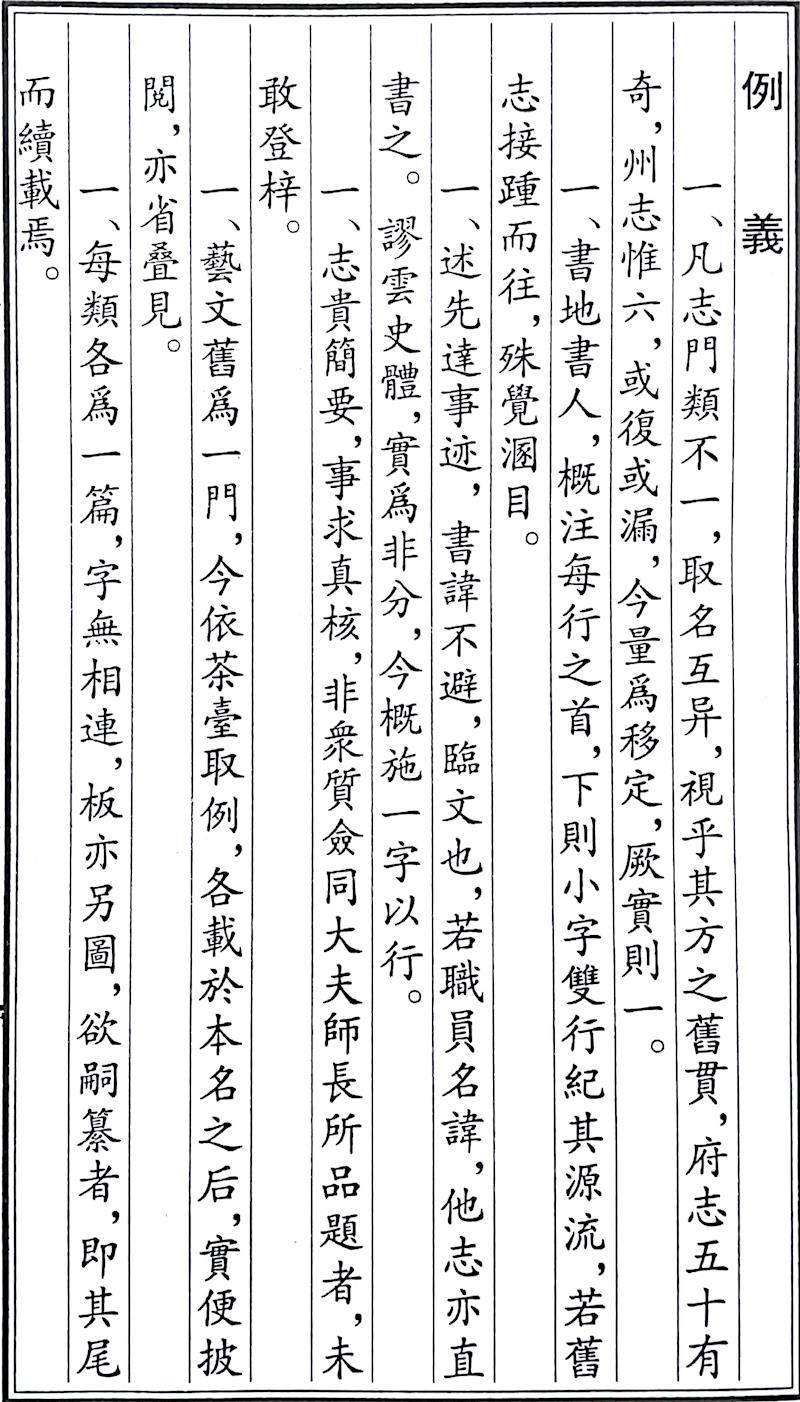 例義
一、凡志門類不一，取名互异，視乎其方之舊貫，府志五十有
奇，州志惟六，或復或漏，今量爲移定，厥實則一。
一、書地書人，概注每行之首，下則小字雙行紀其源流，若舊
志接踵而往，殊覺溷目。
一、述先達事迹，書諱不避，臨文也，若職員名諱，他志亦直
書之。謬雲史體，實爲非分，今概施一字以行。
一、志貴簡要，事求真核，非衆質僉同大夫師長所品題者，未
敢登梓。
一、藝文舊爲一門，今依茶臺取例，各載於本名之后，實便披
閱，亦省叠見。
一、每類各爲一篇，字無相連，板亦另圖，欲嗣纂者，即其尾
而續載焉。